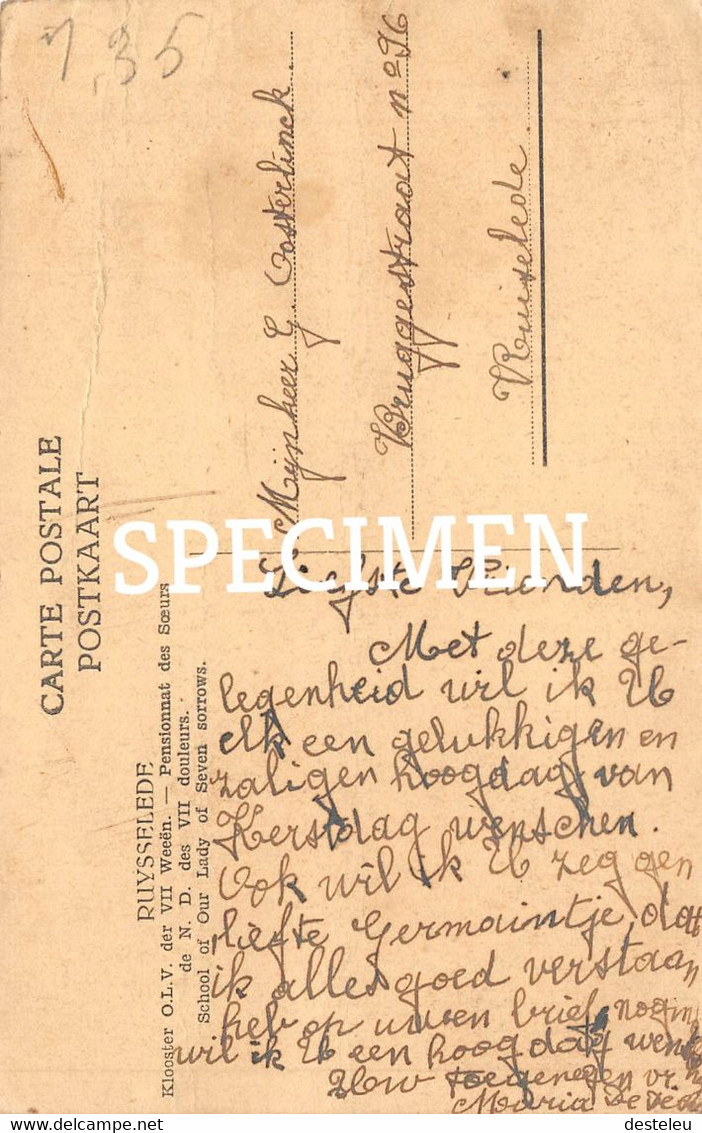 7,35
CARTE POSTALE
POSTKAART
RUYSSELEDE
Klooster O.L.V. der VII Weeën. — Pensionnat des Sœurs
de N. D. des VII douleurs.
School of Our Lady of Seven sorrows.
Mijnheer G. Oosterlinck
Bruggestraat nº 96
Ruiselede
SPECIMEN
Liefste Vrienden,
Met deze ge-
legenheid wil ik U
elk een gelukkigen en
zaligen hoogdag van
Kerstdag wenschen.
Ook wil ik U zeggen
liefte Germaintje dat
ik alles goed verstaan
heb op uwen brief nog
wil ik U een hoogdag
Uw toegenegen
Maria
desteleu